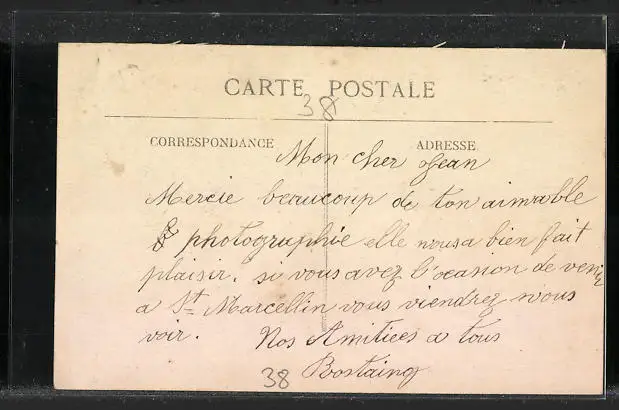 CARTE POSTALE
38
CORRESPONDANCE
ADRESSE
Mon cher Jean
Mercie beaucoup de ton aimable
photographie elle nousa bien fait
plaisir. si vous avez l'ocasion de venir
a St Marcellin vous viendrez nous
voir. Nos Amitiées a tous
Bostaing
38